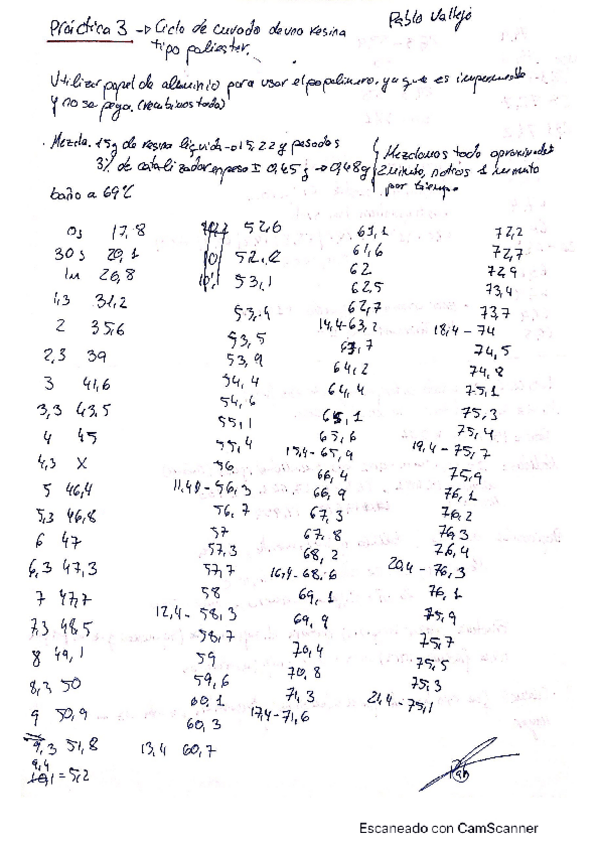 Pablo Vallejo
Práctica 3 → Ciclo de curado de una resina
tipo poliester.
Utilizar papel de aluminio para usar el popolimero, ya que es impermeable
y no se pega.
. Mezcla. 15g de resina liquida → 15,22 g pesados
3% de catalizador en peso I 0,45 g → 0,48g
Mezclamos todo aproximadat
2 minuto, 1 minuto
por tiempo.
baño a 69°C
0s 17,8
30s 20,1
1m 26,8
1,3 31,2
2 35,6
2,3 39
3 41,6
3,3 43,5
4 45
4,3 X
5 46,4
5,3 46,8
6 47
6,3 47,3
7 47,7
7,3 48,5
8 49,1
8,3 50
9 50,9
9,3 51,8
9,4
10,1 = 5,2
52,6
10 52,2
10,1 53,1
53,4
53,5
53,9
54,4
54,6
55,1
55,4
56
11,40 - 56,3
56,7
57
57,3
57,7
58
12,4 - 58,3
58,7
59
59,6
60,1
60,3
13,4 60,7
61,1
61,6
62
62,5
62,7
14,4-63,2
63,7
64,2
64,4
65,1
65,6
15,4-65,9
66,4
66,9
67,3
67,8
68,2
16,4-68,6
69,1
69,9
70,4
70,8
71,3
17,4-71,6
72,2
72,7
72,9
73,4
73,7
18,4 - 74
74,5
74,8
75,1
75,3
75,4
19,4 - 75,7
75,9
76,1
76,2
76,3
76,4
20,4 - 76,3
76,1
75,9
75,7
75,5
75,3
21,4 - 75,1
Escaneado con CamScanner